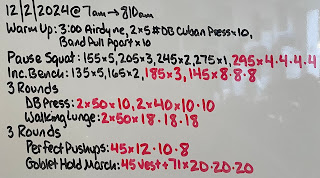 12/2/2024 @ 7am → 810am
Warm Up: 3:00 Airdyne, 2×5#DB Cuban Press×10,
Band Pull Apart×10
Pause Squat: 155×5, 205×3, 245×2, 275×1, 295×4·4·4·4
Inc. Bench: 135×5, 165×2, 185×3, 145×8·8·8
3 Rounds
DB Press: 2×50×10, 2×40×10·10
Walking Lunge: 2×50×18·18·18
3 Rounds
Perfect Pushups: 45×12·10·8
Goblet Hold March: 45 Vest+71×20·20·20